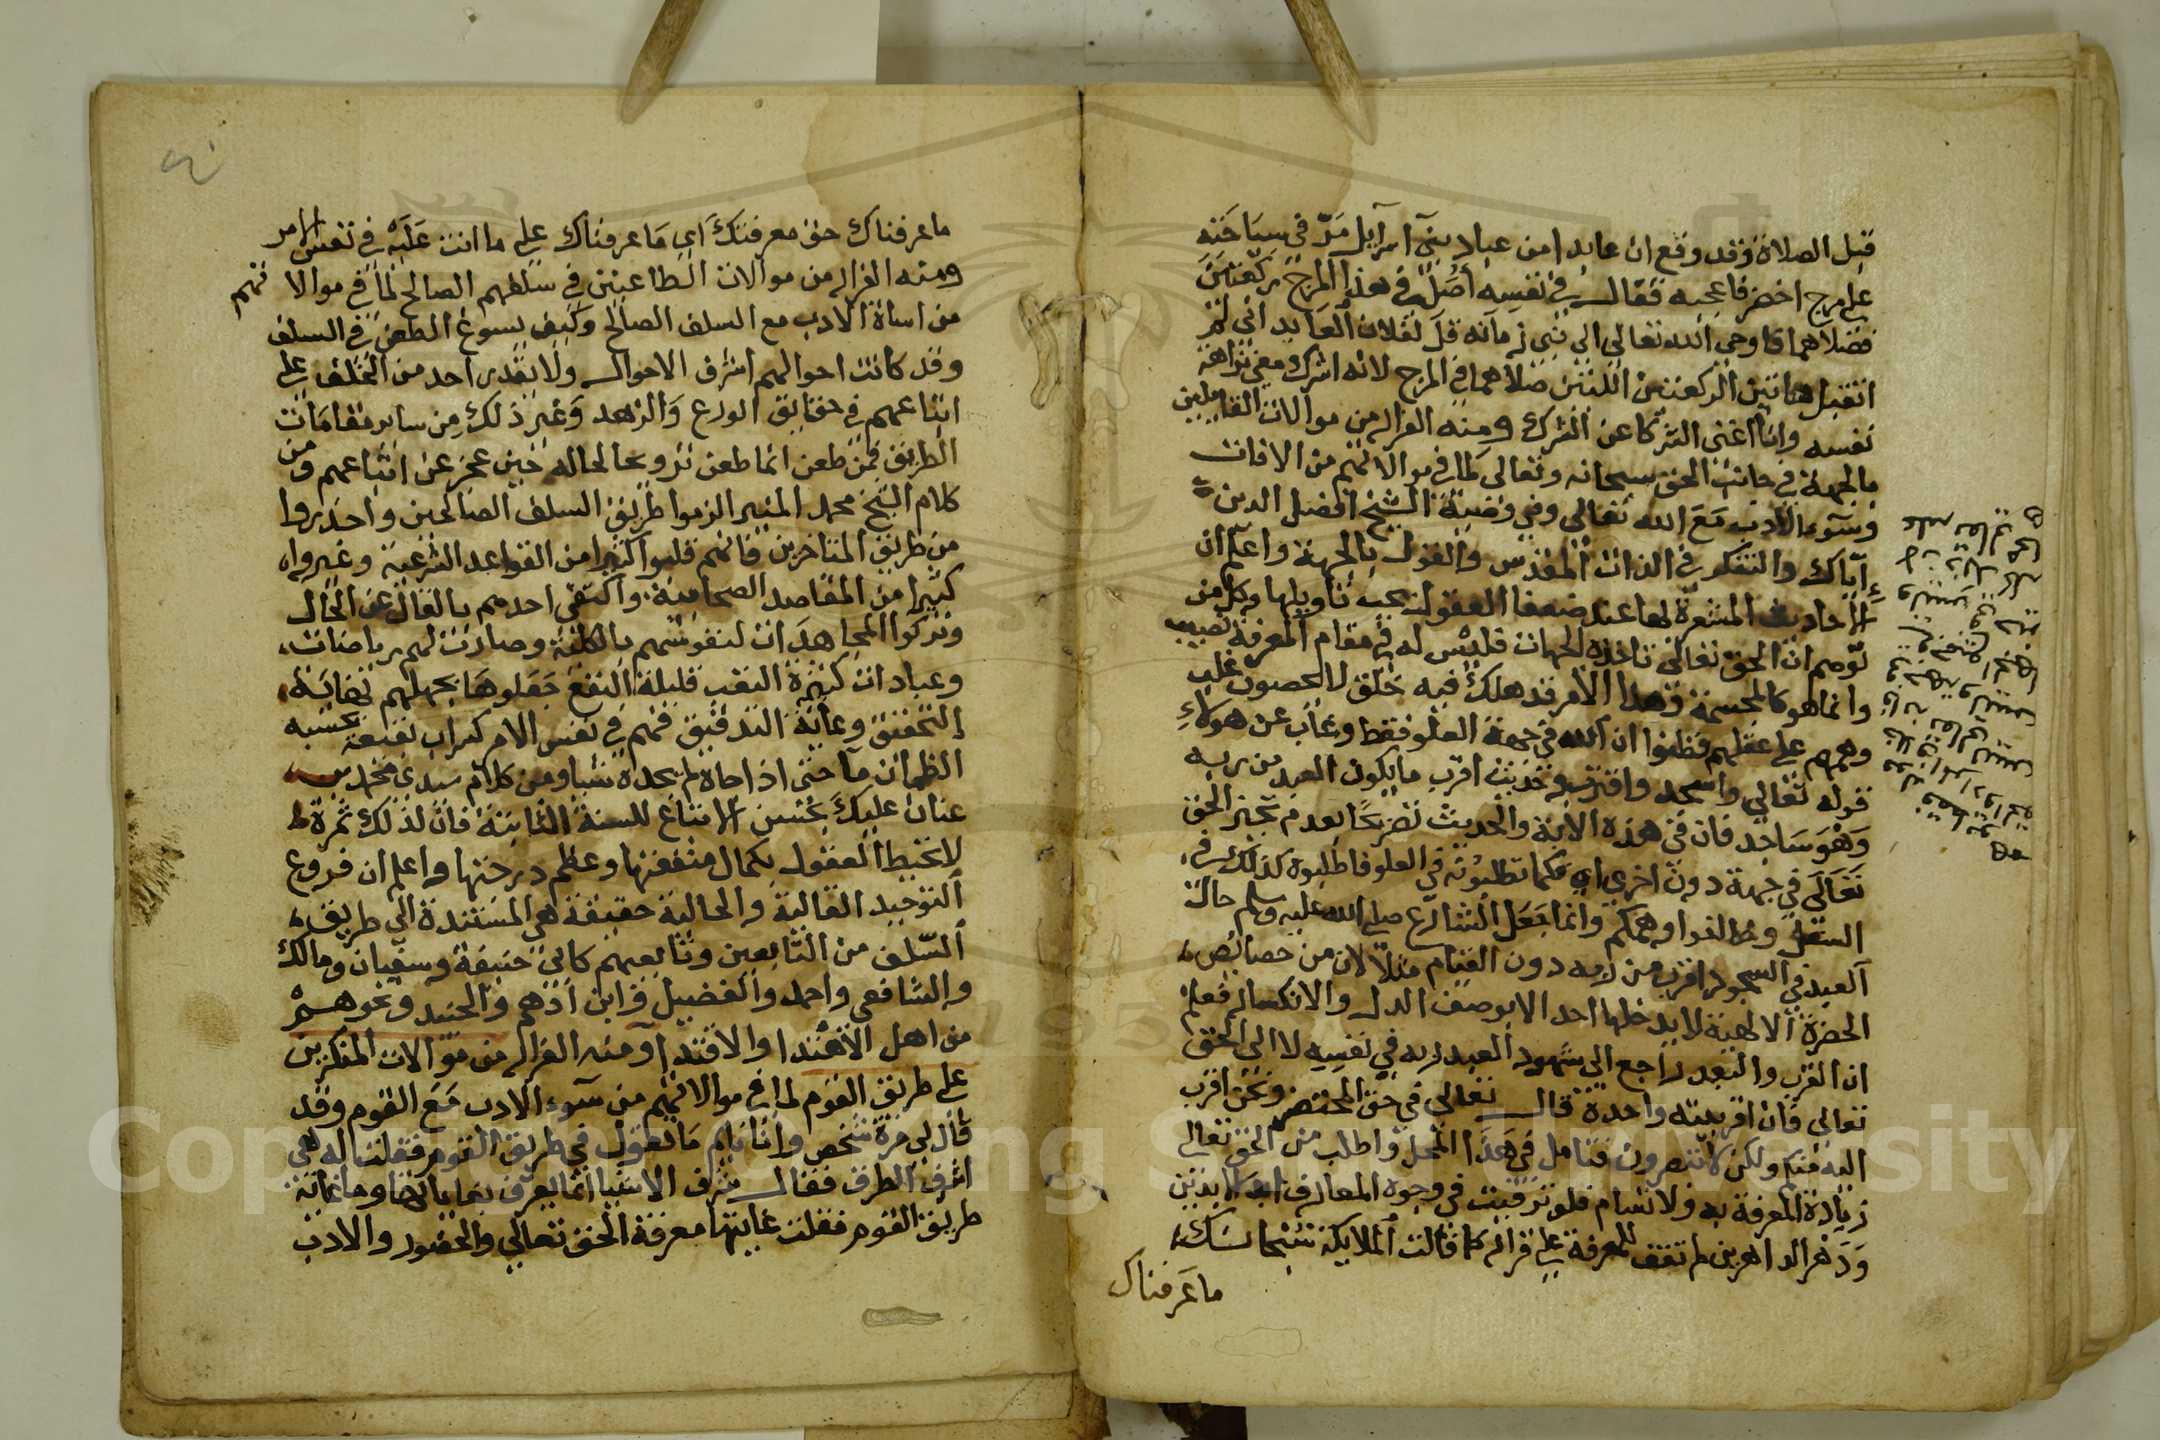 قبل الصلاة وقد وقع ان عابدا من عباد بني آسرآيل مَرّ في سِيَاحَتِه
علي مرج اخضر فاعجبه فقال في نفسِه أصَلي في هذا المرج ركعتين
فصلاهما فاوحي الله تعالي الي نبي زمآنه قل لفلان العَابد اني لم
اتقبل هاتين الركعتين اللتين صلاهما في المرج لانه اشرك معي نزاهة
نفسه وانا اغني الشركا عن الشرك ومنه الفرار من موالات القايلين
بالجهة في جانب الحق سبحانه وتعالي لما في موالاتهم من الافات
وسوء الادب مَعَ الله تعالي وفي وصية الشيخ افضل الدين
إيّاك والتفكر في الذات المقدس والقول بالجهة واعلم ان
الاحاديث المشعرة لها عند ضعفا العقول يجب تأويلها وكل من
توهم ان الحق تعالي تاخذه الجهات فليس له في مقام المعرفة نصيب
وانما هو كالمجسمة وهذا الامر قد هلك فيه خلق لا يحصون غلب
وهمهم علي عقلهم فظنوا ان الله في جهة العلو فقط وغاب عن هولاء
قوله تعالي واسجد واقترب وحديث اقرب ما يكون العبد من ربه
وَهوَ سَاجد فان في هذه الآية والحديث تصريحًا بعدم تحيز الحق
تَعَالَي في جهة دون اخري اي فكما تطلبونه في العلو فاطلبوه كذلك في
السفل وخالفوا وهمكم وانما جَعَل الشارع صلي الله عليه وسلم حالة
العبد في السجود اقرب من ربه دون القيام مثلا لان من خصائص
الحضرة الالهية لا يدخلها احد الا بوصف الذل والانكسار فعلم
ان القرب والبعد راجع الي شهود العبد ربه في نفسِه لا الي الحق
تعالي فان اقربيته واحدة قال تعالي في حق المحتضر ونحن اقرب
اليه منكم ولكن لا تبصرون فتامل في هَذا المحل واطلب من الحق تعالي
زيادة المعرفة به ولا تسام فلو ترقيت في وجوه المعارف ابد الابدين
وَدَهْر الداهرين لم تقف للمعرفة علي قرار كما قالت الملايكة سُبحانك
ما عَرفناك
ما عرفناك حق معرفتكَ اي مَا عرفناك علي ما انت عَلَيْه في نفس الامر
ومنه الفرار من موالات الطاعنين في سلفهم الصالح لما في موالاتهم
من اساة الادب مع السلف الصالح وكيف يسوغ الطعن في السلف
وقد كانت احوالهم اشرف الاحوال ولا يقدر احد من الخلف علي
اتباعهم في حقايق الورع وَالزهد وَغير ذلك مِن ساير مقامَات
الطريق فمن طعن انما طعن ترويجا لحاله حين عجز عن اتباعهم ومن
كلام الشيخ محمد المنير الزموا طريق السلف الصالحين واحذروا
من طريق المتاخرين فانهم قلبوا كثيرا من القواعد الشرعية وغيروا
كثيرا من المقاصد الصحابية واكتفي احدهم بالقال عن الحال
وتركوا المجاهدات لنفوسهم بالكلية وصارت لهم رياضات
وعبادات كثيرة التعب قليلة النفع جَعَلوهَا بجهلهم نهاية
التحقيق وغاية التدقيق فهم في نفس الامر كسراب بقيعة يحسبه
الظمان مآ حتي اذا جاه لم يجده شيا ومن كلام سيدي محمد بن
عنان عليك بحُسْن الاتباع للسنة الثابتة فان لذلك ثمرة
لا تحيط العقول بكمال منفعتها وعظم درجتها واعلم ان فروع
التوحيد القالية والحالية حقيقة هي المستندة الي طريق
السّلف من التابعين وتابعيهم كابي حنيفة وسفيان ومالك
والشافعي واحمد والفضيل وابن ادهم والجنيد ونحوهم
من اهل الاهتدا والاقتدا ومنه الفرار من موالات المنكرين
علي طريق القوم لما في موالاتهم من سوء الادب مَعَ القوم وقد
قال لي مرة شخص وانا نايم مَا تقول في طريق القوم فقلت له هي
اشرف الطرق فقال شرف الاشيا انما يعرف بغاياتها وما غاية
طريق القوم فقلت غايتها معرفة الحق تعالي والحضور والادب